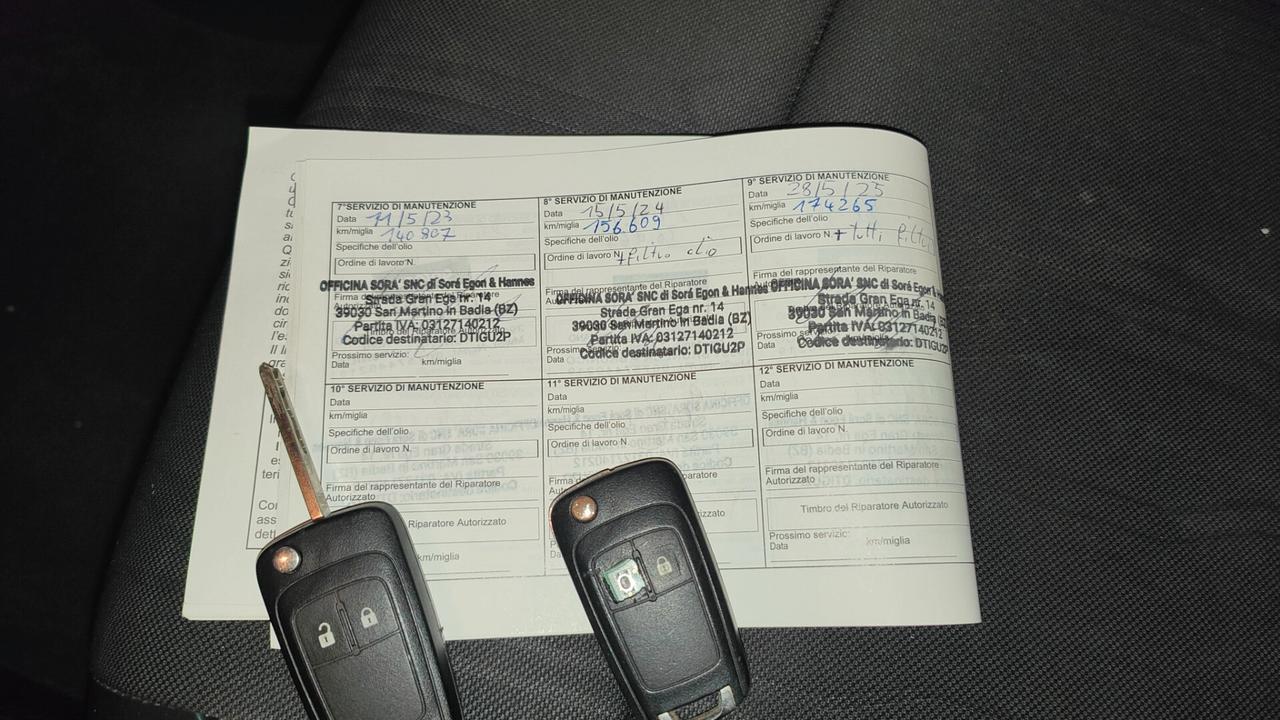 7° SERVIZIO DI MANUTENZIONE
Data 11/5/23
km/miglia 140 807
Specifiche dell'olio
Ordine di lavoro N.
OFFICINA SORA' SNC di Sorá Egon & Hannes
Firma del rappresentante del Riparatore
Strada Gran Ega nr. 14
39030 San Martino in Badia (BZ)
Partita IVA: 03127140212
Codice destinatario: DTIGU2P
Prossimo servizio:
Data km/miglia
8° SERVIZIO DI MANUTENZIONE
Data 15/5/24
km/miglia 156.609
Specifiche dell'olio
Ordine di lavoro N. + filtro olio
Firma del rappresentante del Riparatore
OFFICINA SORA' SNC di Sorá Egon & Hannes
Strada Gran Ega nr. 14
39030 San Martino in Badia (BZ)
Partita IVA: 03127140212
Codice destinatario: DTIGU2P
Data
9° SERVIZIO DI MANUTENZIONE
Data 28/5/25
km/miglia 174265
Specifiche dell'olio
Ordine di lavoro N. + tutti filtri
Firma del rappresentante del Riparatore
OFFICINA SORA' SNC di Sorá Egon &
Strada Gran Ega nr. 14
39030 San Martino in Badia (BZ)
Partita IVA: 03127140212
Codice destinatario: DTIGU2P
Data
10° SERVIZIO DI MANUTENZIONE
Data
km/miglia
Specifiche dell'olio
Ordine di lavoro N.
Firma del rappresentante del Riparatore
Autorizzato
Riparatore Autorizzato
km/miglia
11° SERVIZIO DI MANUTENZIONE
Data
km/miglia
Specifiche dell'olio
Ordine di lavoro N.
12° SERVIZIO DI MANUTENZIONE
Data
km/miglia
Specifiche dell'olio
Ordine di lavoro N.
Firma del rappresentante del Riparatore
Autorizzato
Timbro del Riparatore Autorizzato
Prossimo servizio:
Data km/miglia